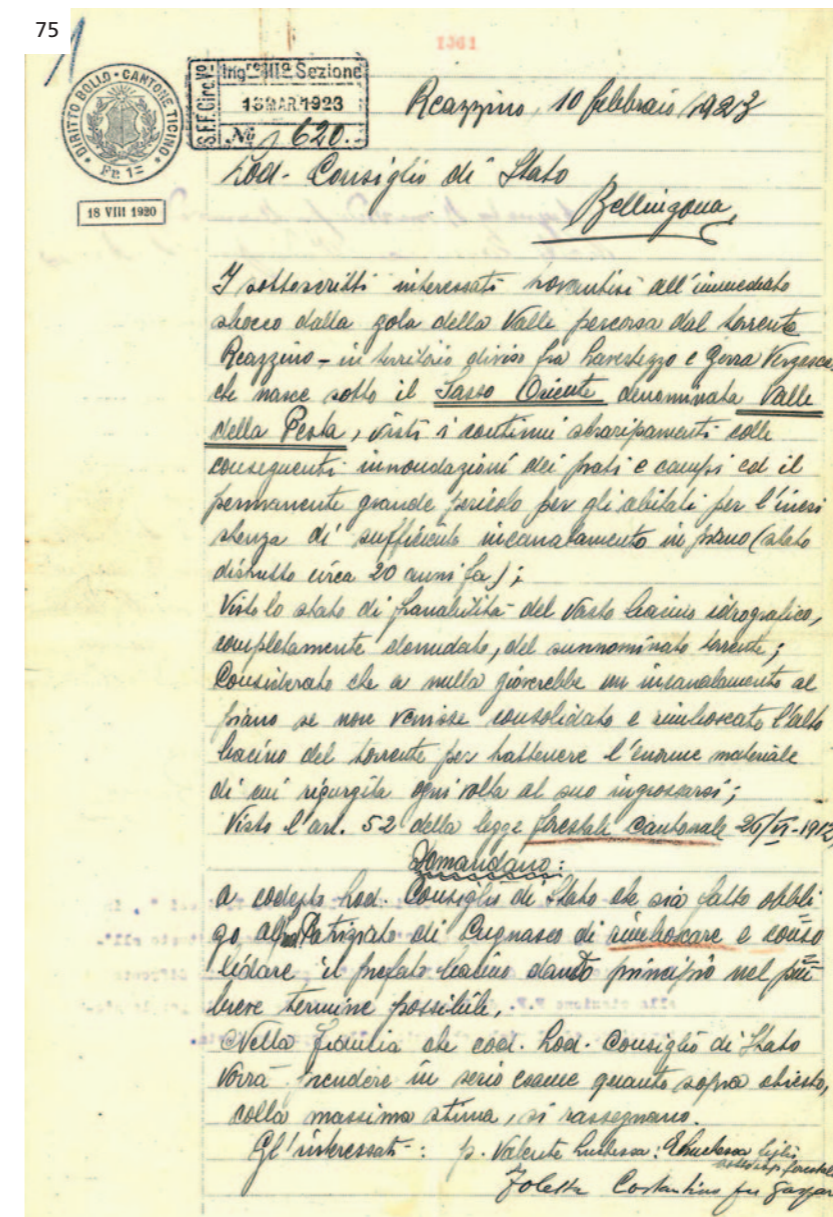 75
1
1361
DIRITTO BOLLO • CANTONE TICINO
Fr. 1=
18 VIII 1920
S.F.F. Circ. Vº
Ing.re IIIª Sezione
13 MAR. 1923
Nº 1620.
Reazzino, 10 febbraio 1923
Lod. Consiglio di Stato
Bellinzona
I sottoscritti interessati trovantisi all'immediato
sbocco dalla gola della Valle percorsa dal torrente
Reazzino - in territorio diviso fra Lavertezzo e Gerra Verzasca,
che nasce sotto il Sasso Oriente denominata Valle
della Pesta, visti i continui straripamenti colle
conseguenti innondazioni dei prati e campi ed il
permanente grande pericolo per gli abitati per l'inesi
stenza di sufficiente incanalamento in piano (stato
distrutto circa 20 anni fa);
Visto lo stato di franabilità del vasto bacino idrografico,
completamente denudato, del sunnominato torrente;
Considerato che a nulla gioverebbe un incanalamento al
piano se non venisse consolidato e rimboscato l'alto
bacino del torrente per trattenere l'enorme materiale
di cui rigurgita ogni volta al suo ingrossarsi;
Visto l'art. 52 della legge forestale cantonale 26/VI-1912,
Domandano:
a codesto Lod. Consiglio di Stato che sia fatto obbli
go al Patriziato di Cugnasco di rimboscare e conso
lidare il prefato bacino dando principio nel più
breve termine possibile.
Nella fiducia che cod. Lod. Consiglio di Stato
vorrà prendere in serio esame quanto sopra chiesto,
colla massima stima, si rassegnano.
Gl'interessati: p. Valente Luchessa: E Luchessa figlio
sottoisp. forestale
Foletta Costantino fu Gaspare